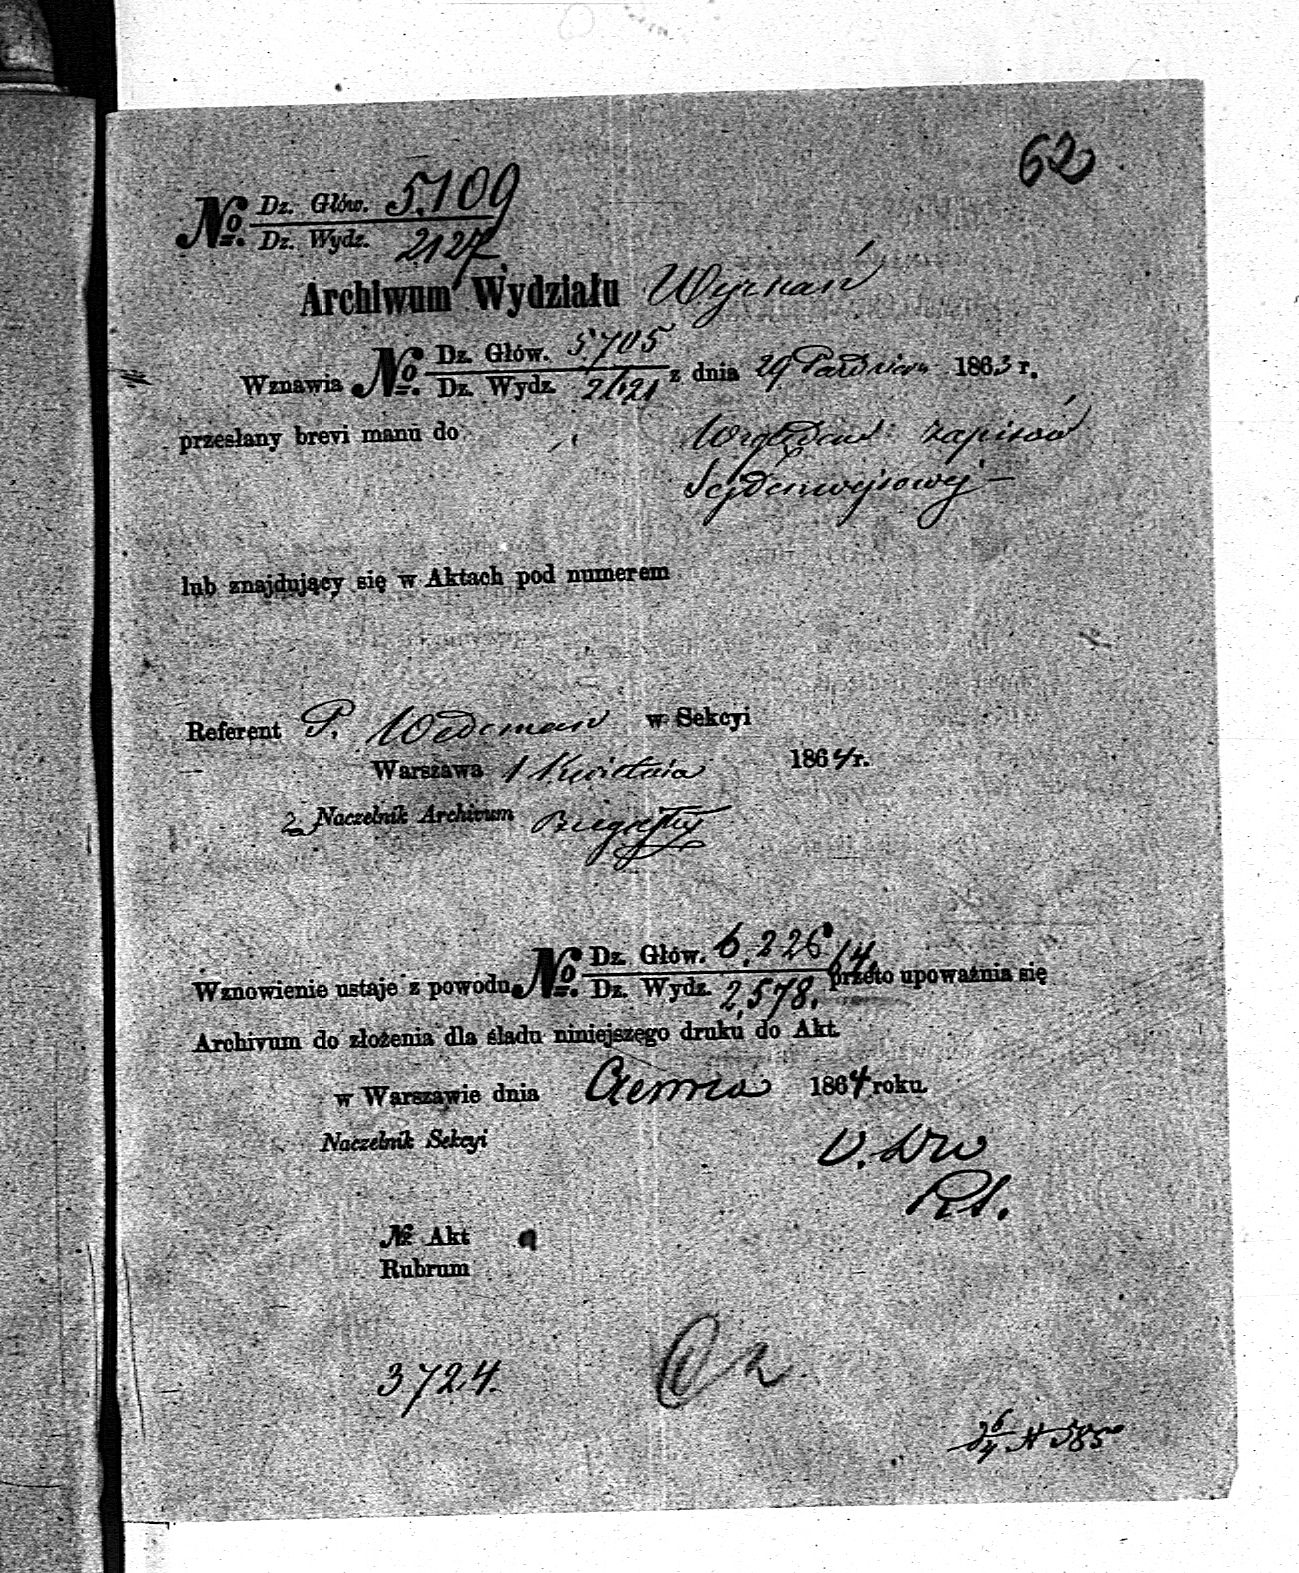 62
No. Dz. Głów. 5,109
Dz. Wydz. 2127
Archiwum Wydziału Wyznań
Wznawia No. Dz. Głów. 5,705
Dz. Wydz. 2121 z dnia 29 Październ 1863 r.
przesłany brevi manu do Względem zapisów
Sejdenwejsowej
lub znajdujący się w Aktach pod numerem
Referent P. Wedeman w Sekcyi
Warszawa 1 Kwietnia 1864 r.
Naczelnik Archivum
Wznowienie ustaje z powodu No. Dz. Głów. 6,226/4
Dz. Wydz. 2,578. przeto upoważnia się
Archivum do złożenia dla śladu niniejszego druku do Akt
w Warszawie dnia Czerwca 1864 roku
Naczelnik Sekcyi
№ Akt
Rubrum
3724.
26/4 N 585